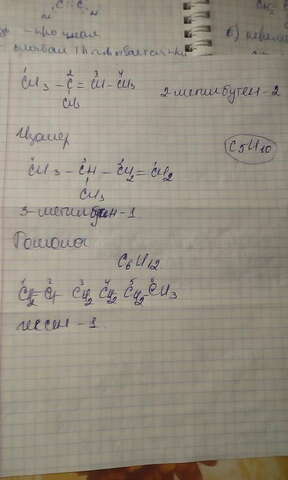 1 2 3 4
CH3 - C = CH - CH3
CH3
2-метилбутен-2
Изомер
C5H10
CH3 - CH - CH2 = CH2
CH3
3-метилбутен-1
Гомолог
C6H12
CH2 CH CH2 CH2 CH2 CH3
гексен-1